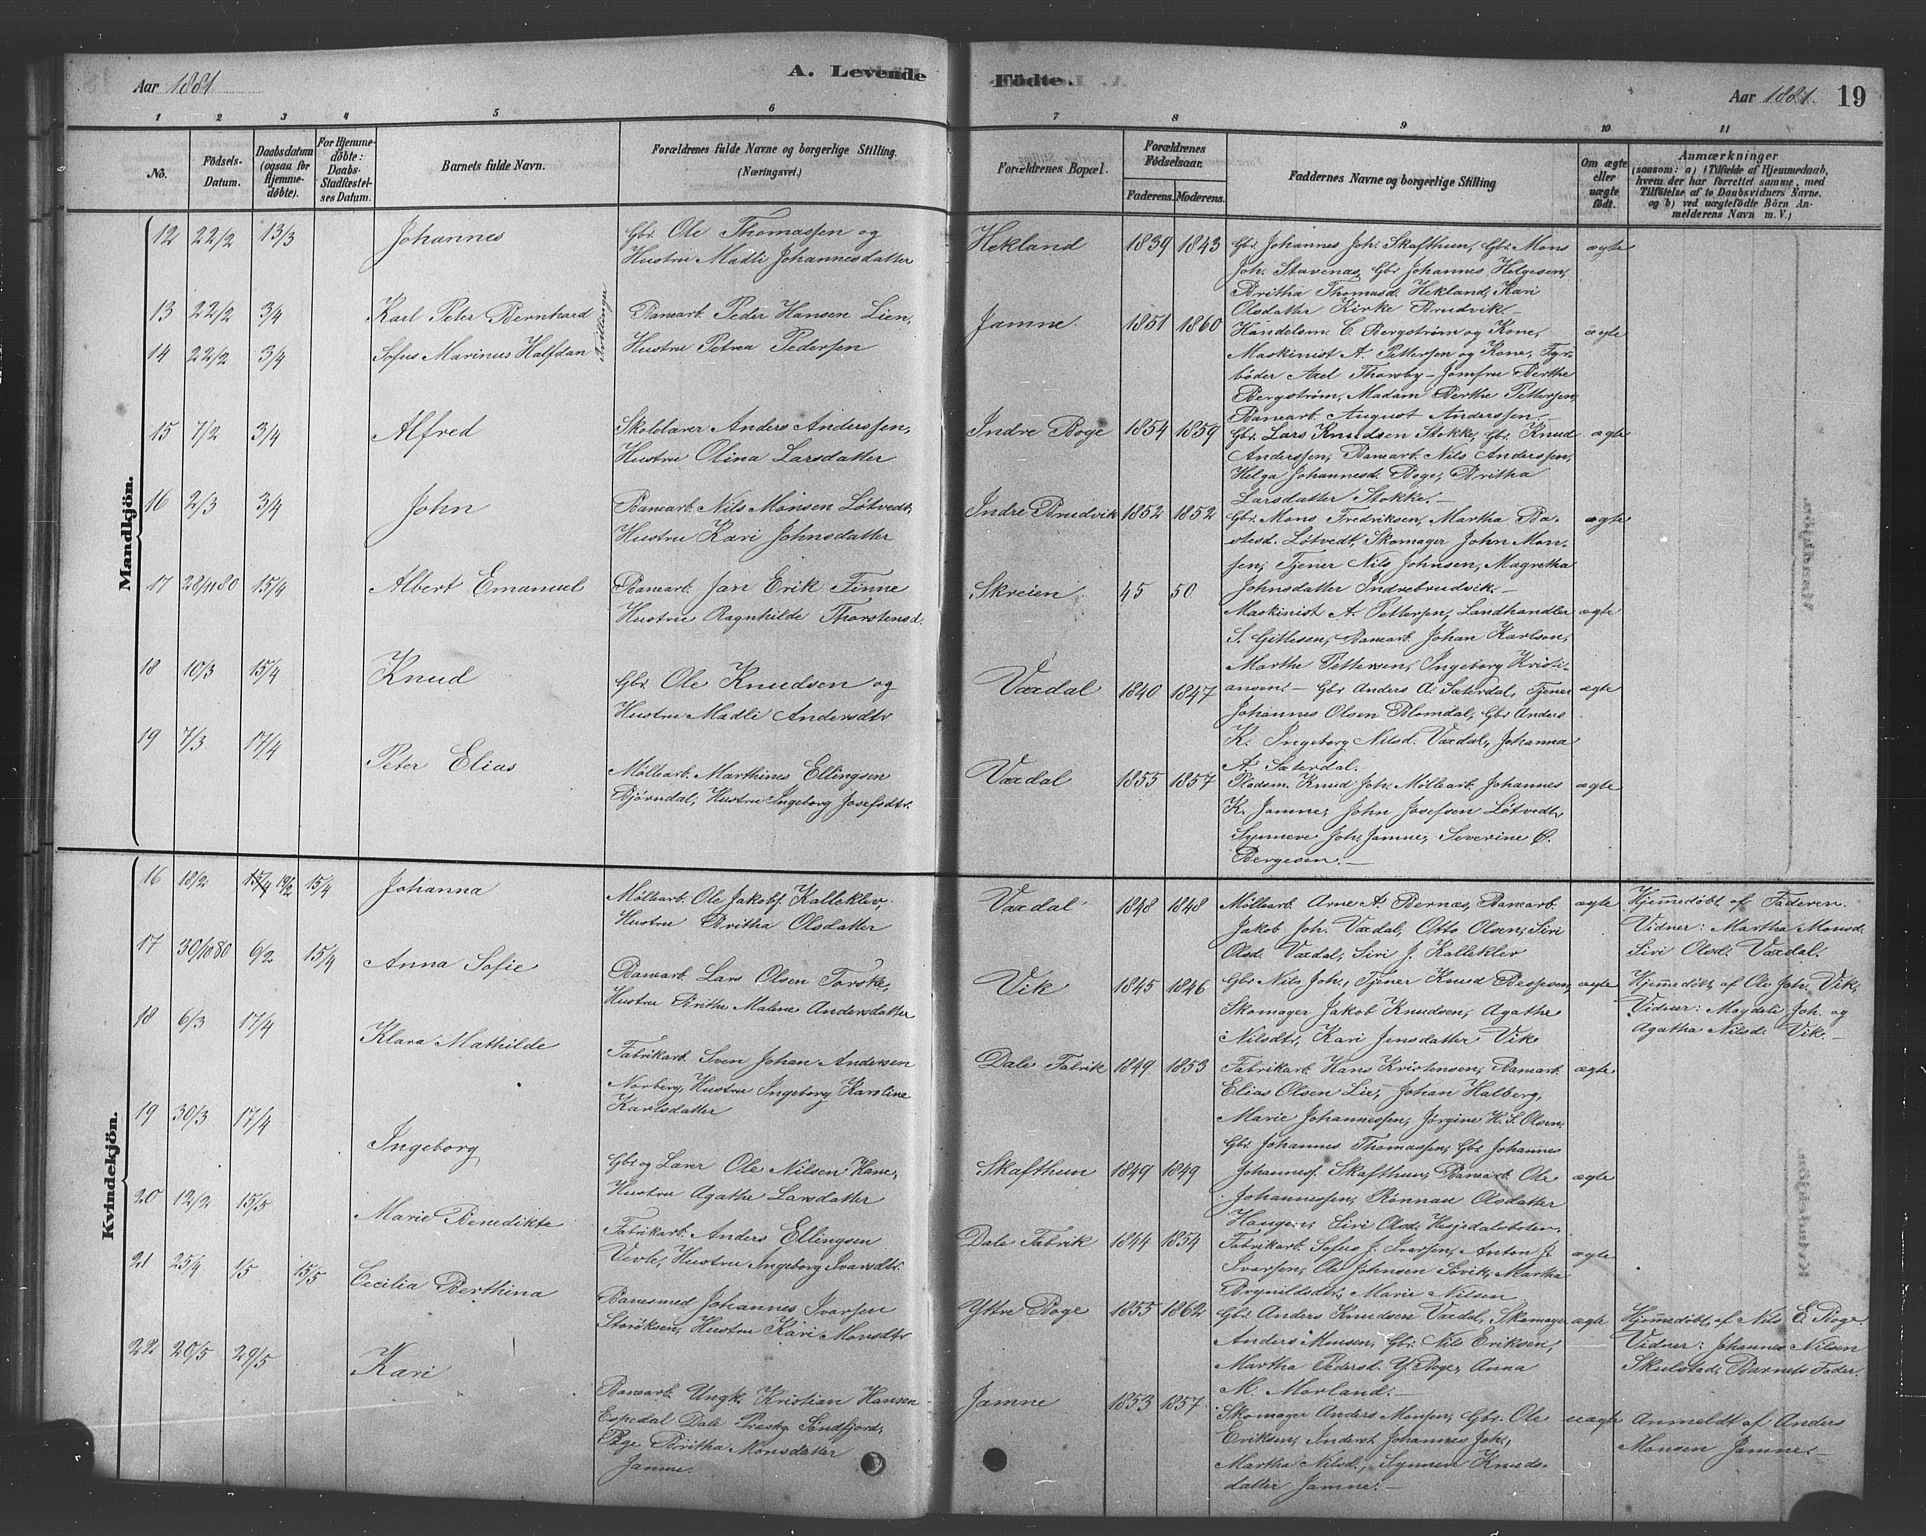 Aar 1881.
A. Levende
Födte.
Aar 1881. 19
1 2 3 4 5 6 7 8 9 10 11
No.
Födsels-Datum.
Daabsdatum (ogsaa for Hjemmedöbte).
For Hjemmedöbte: Daabs-Stadfæstelses Datum.
Barnets fulde Navn.
Forældrenes fulde Navne og borgerlige Stilling. (Næringsvei.)
Forældrenes Bopæl.
Forældrenes Födselsaar.
Faderens. Moderens.
Faddernes Navne og borgerlige Stilling
Om ægte eller uægte födt.
Anmærkninger
(saasom: a) i Tilfælde af Hjemmedaab, hvem der har forrettet samme, med Tilföielse af to Daabsvidners Navne. og b) ved uægtefödte Börn Anmelderens Navn m. V.)
Mandkjön.
12 22/2 13/3 Johannes
Gbr. Ole Thomassen og
Hustru Madli Johannesdatter
Hekland 1839 1843
Gbr. Johannes Joh. Skafthun, Gbr. Mons
Joh. Stavenæs, Gbr Johannes Helgesen,
Britha Thomasd. Hekland, Kari
Olsdatter Kirke Brudvik.
ægte
13 22/2 3/4 Karl Peter Bernhard
14 22/2 3/4 Sofus Marinus Halfdan
Tvillinger
Banearb. Peder Hansen Lien,
Hustru Petrea Pedersen
Jamne. 1851 1860
Handelsm. C. Bergstrøm og Kone,
Maskinist A. Pettersen og Kone, Fyr-
bøder Axel Thorsby - Jomfru Berthe
Bergstrøm, Madam Berthe Pettersen,
Banearb. August Anderssen.
ægte
15 7/2 3/4 Alfred
Skolelærer Anders Anderssen,
Hustru Olina Larsdatter
Indre Boge 1854 1859
Gbr. Lars Knudsen Stokke, Gbr. Knud
Anderssen, Banearb. Nils Anderssen,
Helga Johannesd. Boge, Britha
Larsdatter Stokke.
ægte
16 2/3 3/4 John
Banearb. Nils Monsen Løtvedt,
Hustru Kari Johnsdatter
Indre Brudvik 1852 1852
Gbr. Mons Fredriksen, Martha Ba-
stesd. Løtvedt, Skomager John Mon-
sen, Tjener Nils Johnsen, Magretha
Johnsdatter Indrebrudvik.
ægte
17 28/11 80 15/4 Albert Emanuel
Banearb. Jan Erik Finne
Hustru Ragnhilde Thorstensd.
Skreien 45 50
Maskinist A. Pettersen, Landhandler
S. Gittlesen, Banearb. Johan Karlson,
Marthe Pettersen, Ingeborg Kristi-
ansen.
ægte
18 10/3 15/4 Knud
Gbr. Ole Knudsen og
Hustru Madli Andersdtr
Vaxdal 1840 1847
Gbr Anders A. Sæterdal, Tjener
Johannes Olsen Blomdal, Gbr Anders
K. Ingeborg Nilsd. Vaxdal, Johanna
A. Sæterdal.
ægte
19 7/3 17/4 Peter Elias
Møllearb. Marthines Ellingsen
Bjørndal, Hustru Ingeborg Josefsdtr.
Vaxdal 1855 1857
Pladsm. Knud Joh. Møllearb. Johannes
K. Jamne, John Josefsen Løtvedt,
Synneve Joh. Jamne, Severine O.
Bergesen.
ægte
Kvindekjön.
16 18/2 15/4 19/2 15/4 Johanna
Møllearb. Ole Jakobs. Kalleklev,
Hustru Britha Olsdatter
Vaxdal 1848 1848
Møllearb. Arne A. Bernæs, Banearb.
Jakob Joh. Vaxdal, Otto Olsen, Siri
Olsd. Vaxdal, Siri J. Kalleklev
ægte
Hjemmedøbt af Faderen.
Vidner: Martha Monsd.
Siri Olsd. Vaxdal.
17 30/10 80 6/2 15/4 Anna Sofie
Banearb. Lars Olsen Torske,
Hustru Brithe Malene Andersdatter
Vik 1845 1846
Gbr Nils Joh., Tjener Knud Bessesen,
Skomager Jakob Knudsen, Agathe
Nilsdtr, Kari Jensdatter Vik
ægte
Hjemmedøbt af Ole Joh. Vik,
Vidner: Magdeli Joh. og
Agatha Nilsd. Vik.
18 6/3 17/4 Klara Mathilde
Fabrikarb. Sven Johan Andersen
Norberg, Hustru Ingeborg Karoline
Karlsdatter
Dale Fabrik 1849 1853
Fabrikarb. Hans Kristensen, Banearb.
Elias Olsen Lie, Johan Halberg,
Marie Johannessen, Jørgine H. S. Olsen,
ægte
19 30/3 17/4 Ingeborg
Gbr. og Lærer Ole Nilsen Hane,
Hustru Agathe Larsdatter
Skafthun 1849 1849
Gbr. Johannes Thomassen, Gbr. Johannes
Johannes. Skafthun, Banearb. Ole
Johannessen, Rønnau Olsdatter
Haugen, Siri Olsd. Hesjedalsbolen,
ægte
20 12/2 15/5 Marie Benedikte
Fabrikarb. Anders Ellingsen
Vevle, Hustru Ingeborg Ivarsdtr.
Dale Fabrik 1844 1854
Fabrikarb. Sofus J. Ivarsen, Anton J.
Ivarsen, Ole Johnsen Sovik, Martha
Brynildsdtr, Marie Nilsen
ægte
21 25/4 1/5 15/5 Cecilia Berthina
Banesmed Johannes Ivarsen
Storøksen, Hustru Kari Monsdtr
Yttre Boge 1855 1862
Gbr. Anders Knudsen Vaxdal, Skomager
Anders Monsen, Gbr. Nils Eriksen,
Martha Pedersd. Y. Boge, Anna
M. Morland.
ægte
Hjemmedøbt af Nils E. Boge.
Vidner: Johannes Nilsen
Skulstad, Barnets Fader.
22 20/5 29/5 Kari
Banearb. Ungk. Kristian Hansen
Espedal Dale Præstg. Søndfjord,
Pige Britha Monsdatter
Jamne.
Jamne 1853 1857
Skomager Anders Monsen, Gbr. Ole
Eriksen, Inderst Johannes Joh.,
Martha Nilsd., Synneve Knuds-
datter Jamne.
uægte
Anmeldt af Anders
Monsen Jamne.